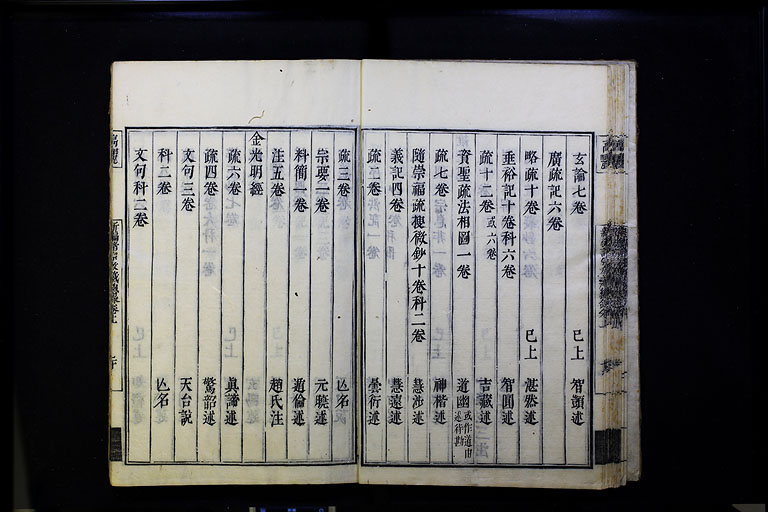 玄論七卷 已上 智顗述
廣疏記六卷
略疏十卷 已上 湛然述
垂裕記十卷科六卷 智圓述
疏十二卷或六卷 吉藏述
資聖疏法相圖一卷 道幽述或作道由述待勘
疏七卷 神楷述
隨崇福疏樓微鈔十卷科二卷 慧涉述
義記四卷 慧遠述
疏三卷 曇衍述
疏三卷 亡名
宗要一卷 元曉述
料簡一卷 道倫述
注五卷 趙氏注
金光明經
疏六卷 真諦述
疏四卷 警韶述
文句三卷 天台說
科二卷 亡名
文句科二卷
新編諸宗教藏總錄卷上